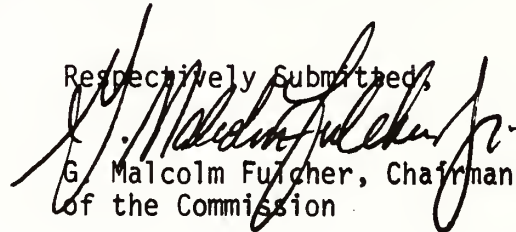 Respectively Submitted,
G. Malcolm Fulcher Jr.
G. Malcolm Fulcher, Chairman
of the Commission